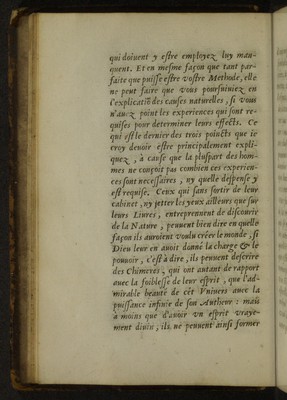 qui doiuent y eſtre employez luy man-
quent. Et en meſme façon que tant par-
faite que puiſſe eſtre voſtre Methode, elle
ne peut faire que vous pourſuiuiez en
l'explicatiõ des cauſes naturelles, ſi vous
n'auez point les experiences qui ſont re-
quiſes pour determiner leurs effects. Ce
qui eſt le dernier des trois poincts que ie
croy deuoir eſtre principalement expli-
quez, à cauſe que la pluſpart des hom-
mes ne conçoit pas combien ces experien-
ces ſont neceſſaires, ny quelle deſpenſe y
eſt requiſe. Ceux qui ſans ſortir de leur
cabinet, ny jetter les yeux ailleurs que ſur
leurs Liures, entreprennent de diſcourir
de la Nature, peuuent bien dire en quelle
façon ils auroient voulu créer le monde, ſi
Dieu leur en auoit donné la charge & le
pouuoir, c'eſt à dire, ils peuuent deſcrire
des Chimeres, qui ont autant de rapport
auec la foibleſſe de leur eſprit, que l'ad-
mirable beauté de cét Vniuers auec la
puiſſance infinie de ſon Autheur: mais
à moins que d'auoir vn eſprit vraye-
ment diuin, ils ne peuuent ainſi former